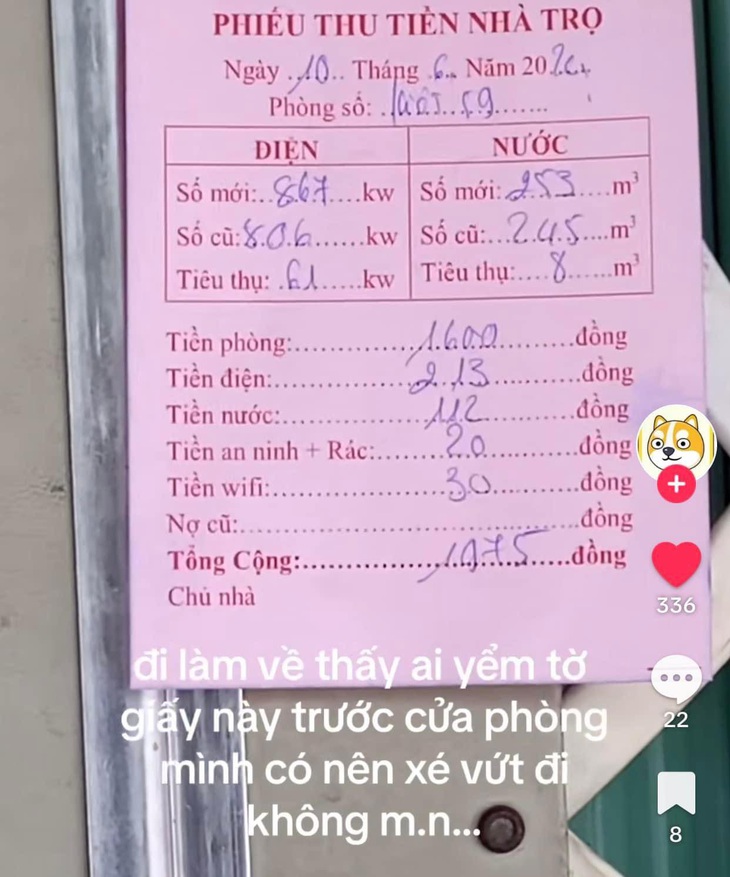 PHIẾU THU TIỀN NHÀ TRỌ
Ngày 10 Tháng 6 Năm 202
Phòng số: 59
ĐIỆN
NƯỚC
Số mới: 867 kw
Số mới: 253 m³
Số cũ: 806 kw
Số cũ: 245 m³
Tiêu thụ: 61 kw
Tiêu thụ: 8 m³
Tiền phòng: 1.600 đồng
Tiền điện: 213 đồng
Tiền nước: 112 đồng
Tiền an ninh + Rác: 20 đồng
Tiền wifi: 30 đồng
Nợ cũ: đồng
Tổng Cộng: 1975 đồng
Chủ nhà
đi làm về thấy ai yểm tờ
giấy này trước cửa phòng
mình có nên xé vứt đi
không m.n...
336
22
8